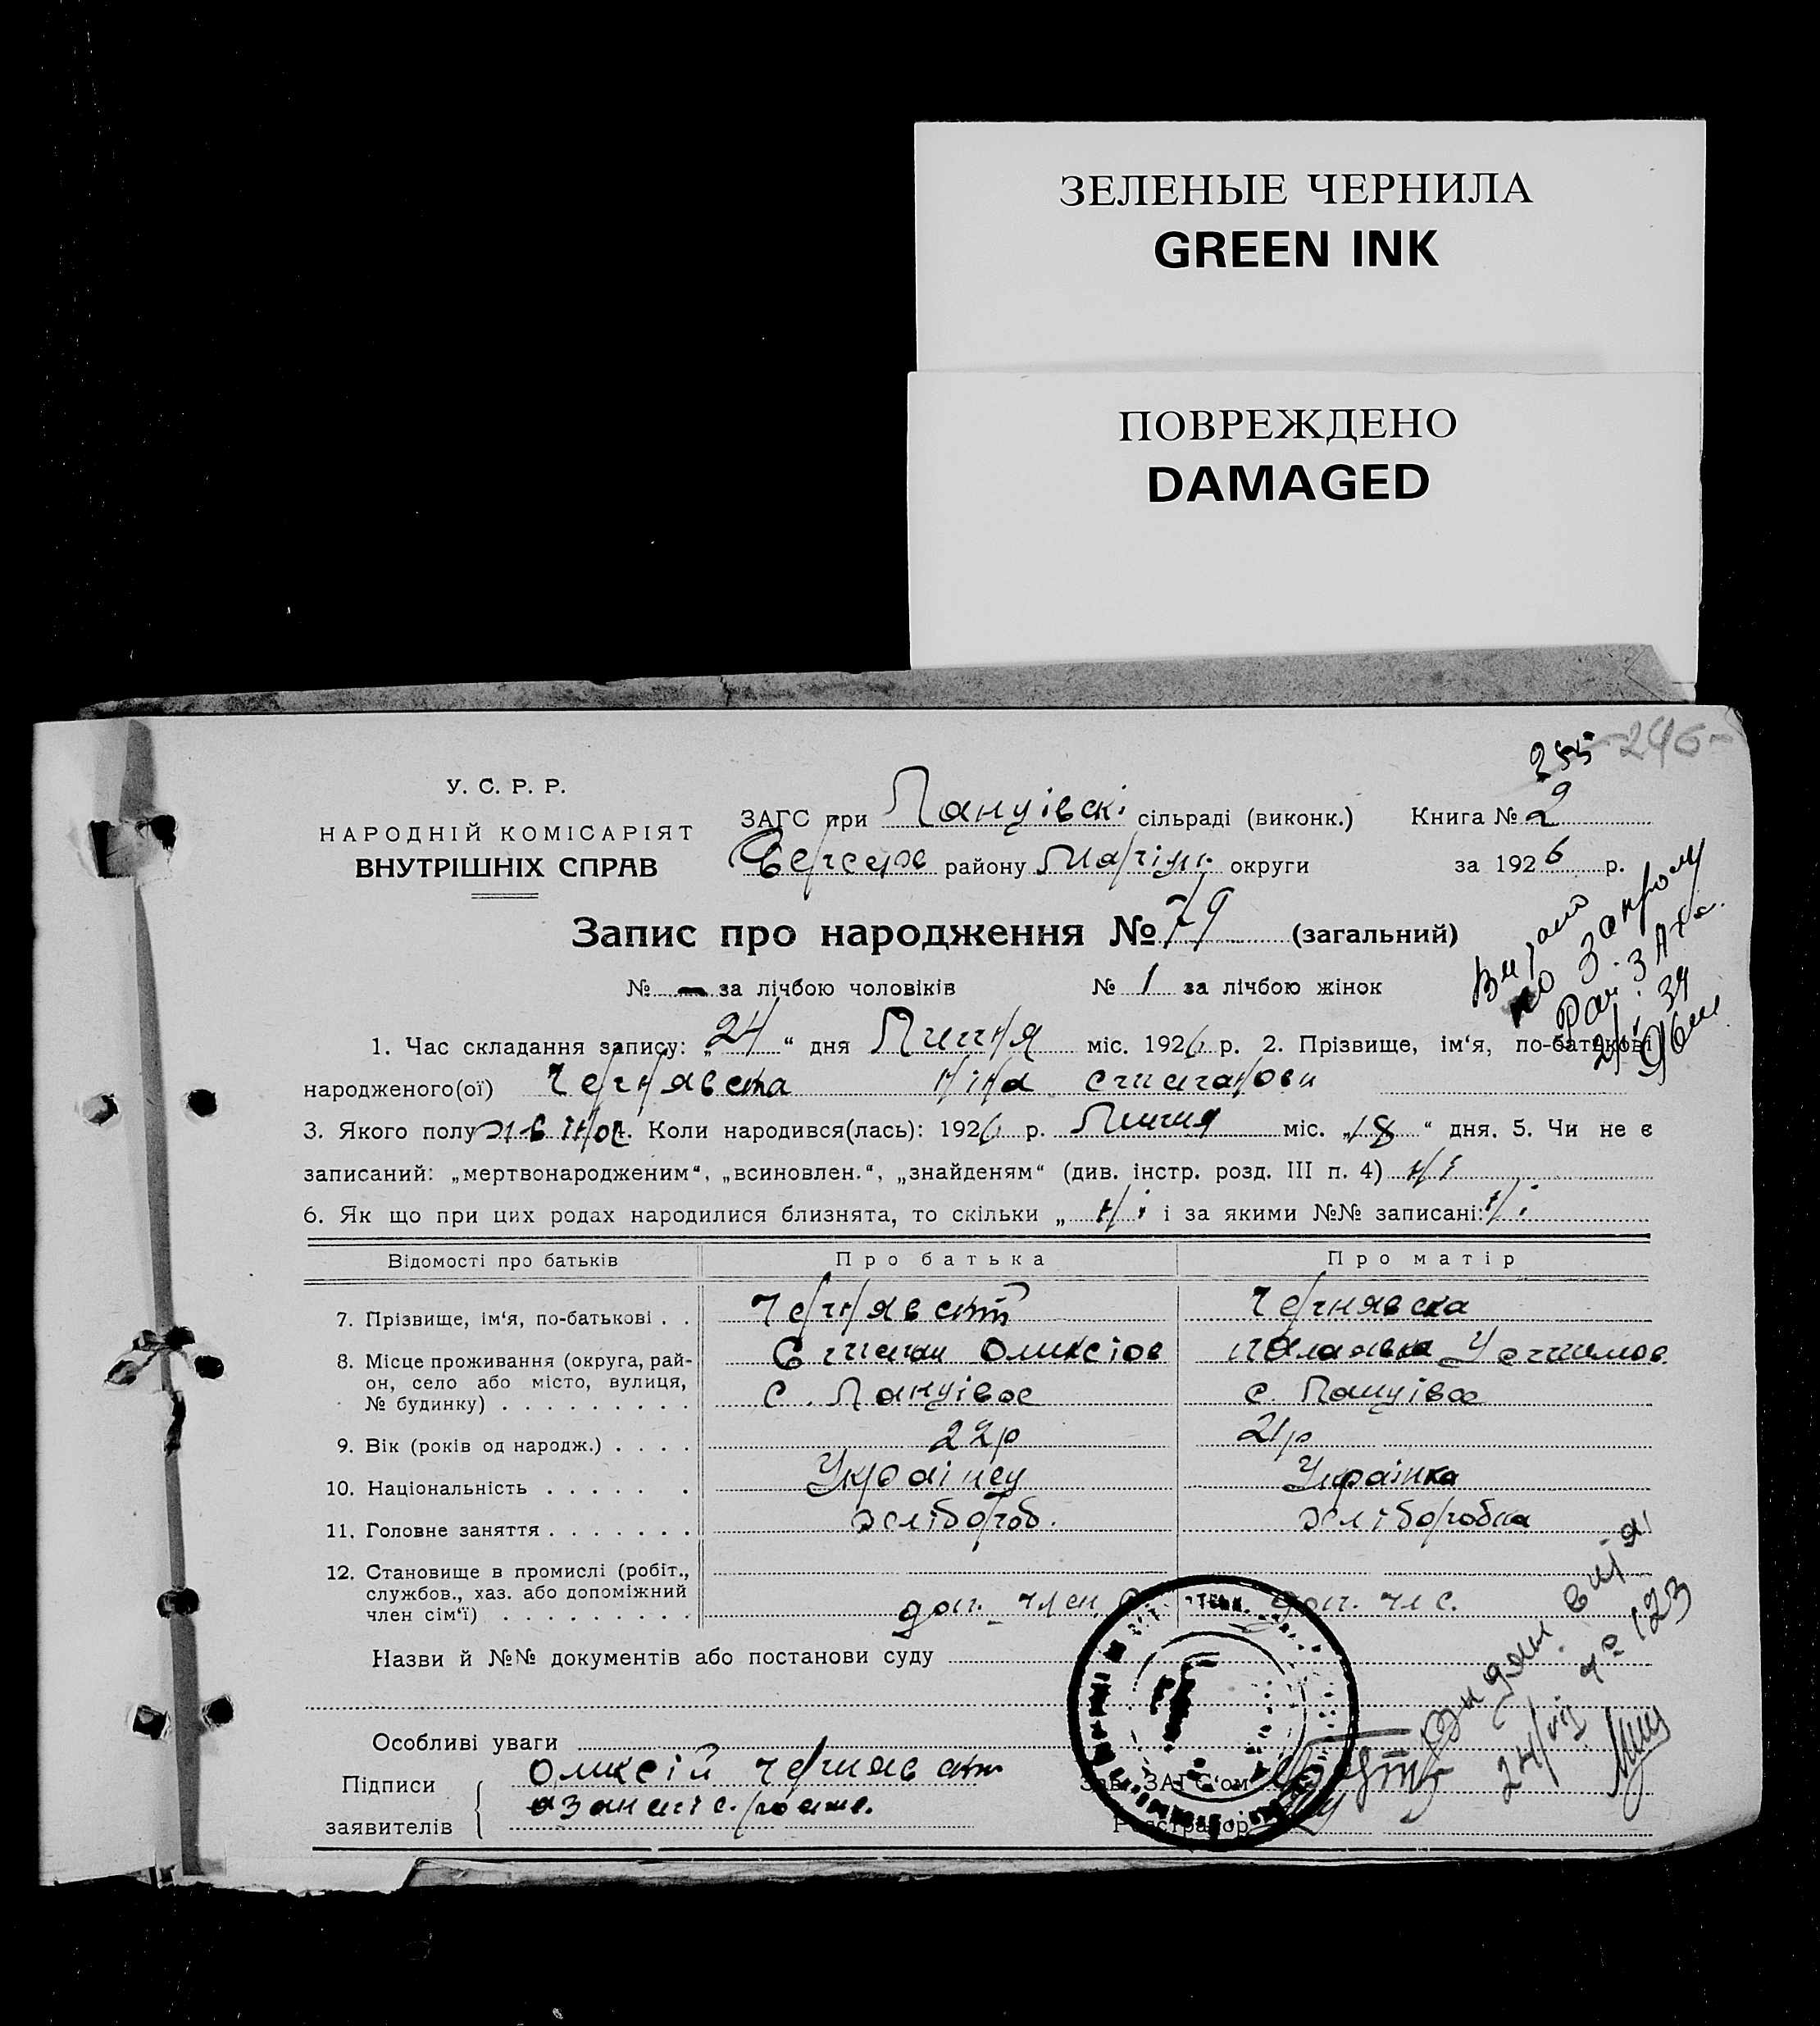 ЗЕЛЕНЫЕ ЧЕРНИЛА
GREEN INK
ПОВРЕЖДЕНО
DAMAGED
255 -246-
У. С. Р. Р.
НАРОДНІЙ КОМІСАРІЯТ
ВНУТРІШНІХ СПРАВ
ЗАГС при Панціівскі сільраді (виконк.) Книга № 2
району округи за 1926 р.
Запис про народження № 79 (загальний)
№ — за лічбою чоловіків № 1 за лічбою жінок
1. Час складання запису: „24“ дня Липня міс. 1926 р. 2. Прізвище, ім‘я, по-батькові
народженого(ої) Чернявска Ніна
3. Якого полу жіноч. Коли народився(лась): 1926 р. Липня міс. „18“ дня. 5. Чи не є
записаний: „мертвонародженим“, „всиновлен.“, „знайденям“ (див. інстр. розд. III п. 4) ні
6. Як що при цих родах народилися близнята, то скільки „ ні і за якими №№ записані: ні
Відомості про батьків Про батька Про матір
7. Прізвище, ім‘я, по-батькові . . Чернявский Чернявска
8. Місце проживання (округа, рай-
он, село або місто, вулиця,
№ будинку) . . . . . . . . .
Степан Оликсіов
с. Панцівое с. Панцівое
9. Вік (років од народж.) . . . . 22р 21р
10. Національність . . . . . . Українец Українка
11. Головне заняття . . . . . . . хлібороб. хлiборобка
12. Становище в промислі (робіт.,
службов., хаз. або допоміжний
член сім‘ї) . . . . . . . . .
доп. член. доп. чл с.
Назви й №№ документів або постанови суду
Особливі уваги
Підписи
заявителів
Оликсій Чернявский
Зав. ЗАГС‘ом
Реєстратор
24/VII № 123